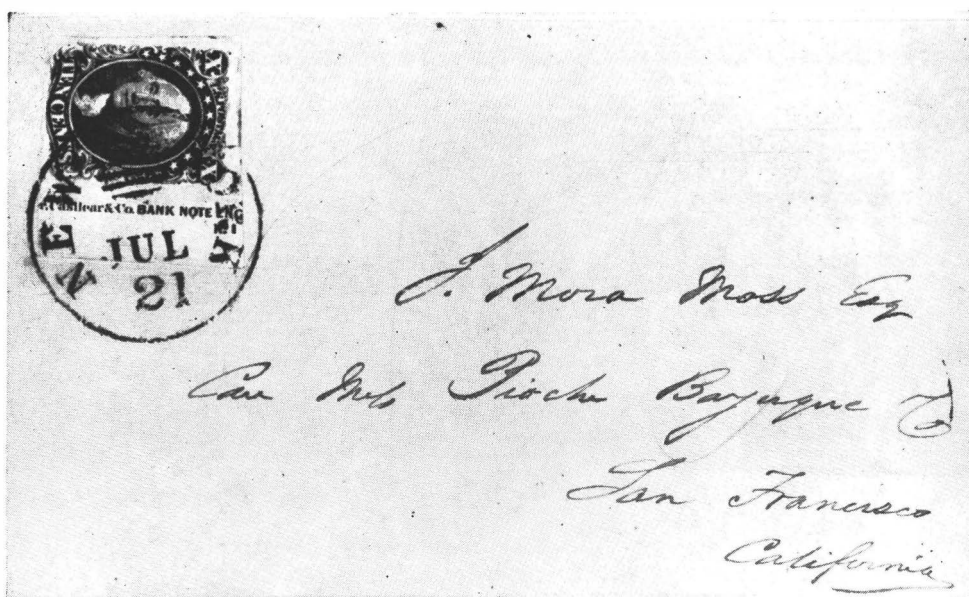 TEN CENTS
& Co. BANK NOTE ENG
NEW
JUL
21
J. Mora Moss Esq
Care Mess Pioche Bayerque
San Francisco
California